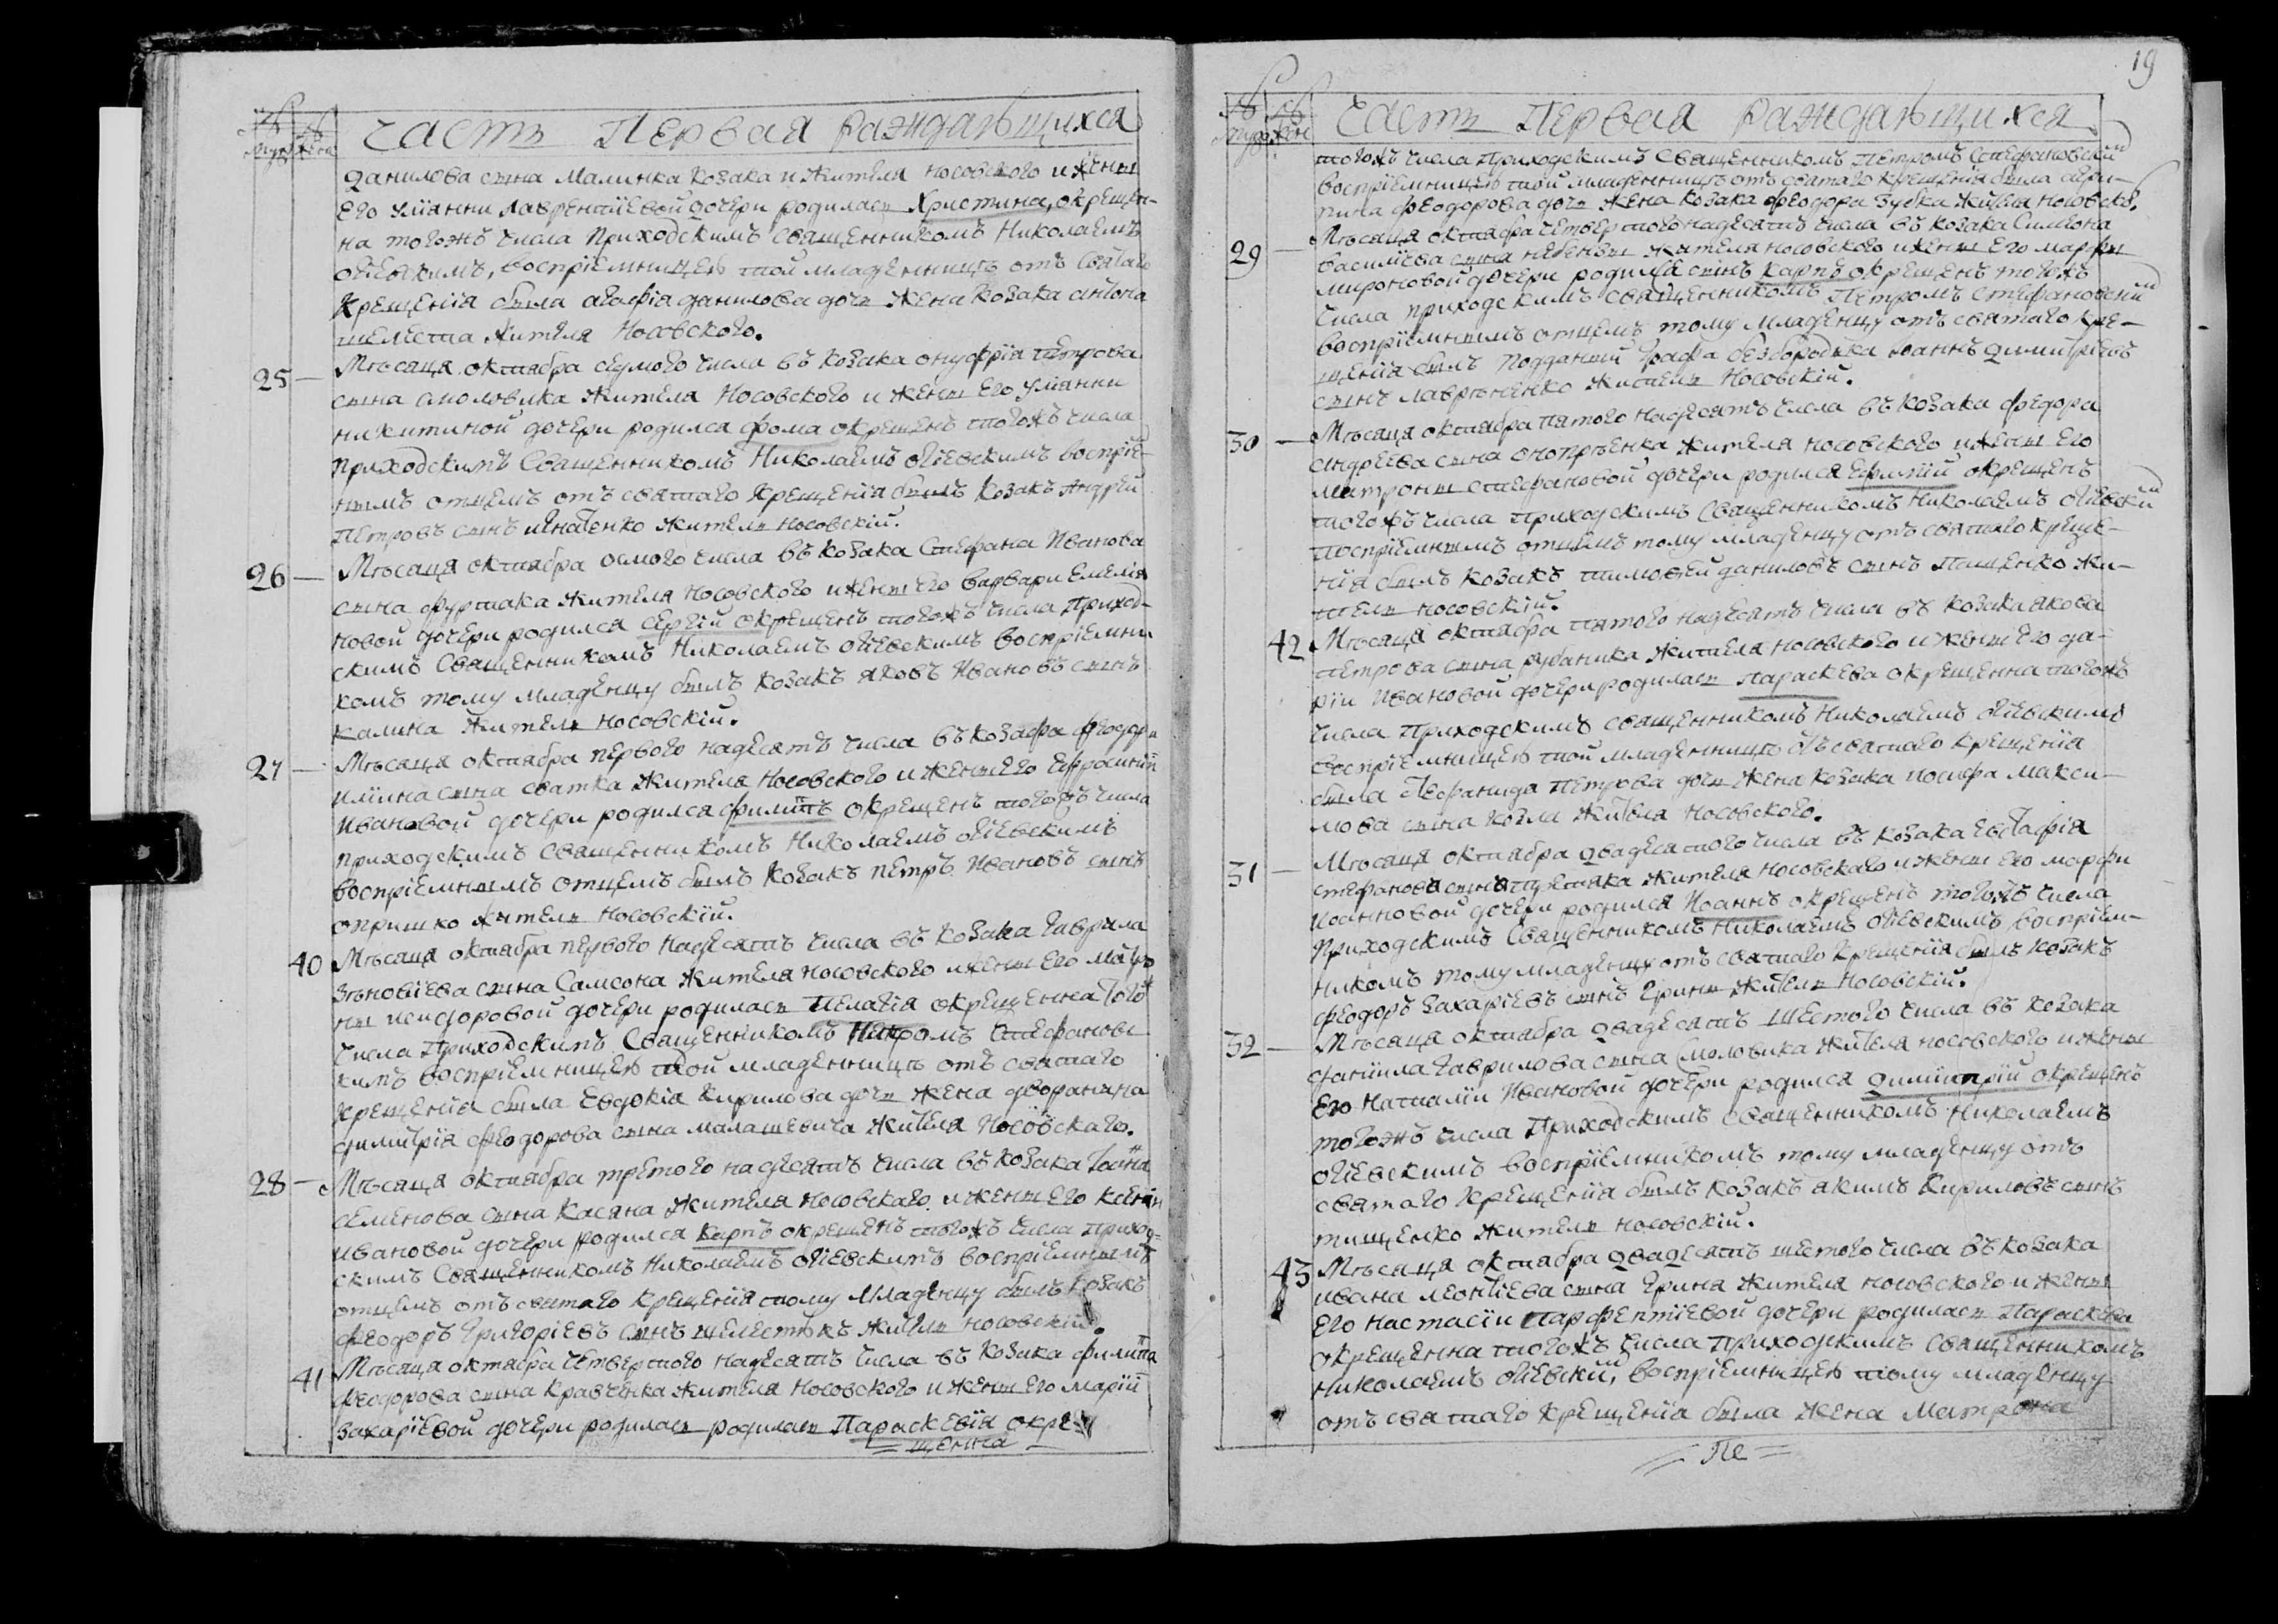 Часть Первая Раждающихся
данилова сына Малинка козака и жителя носовского и жены
его уліанни лаврентіевой дочери родилась Христина, окреще-
на тогожъ числа Приходскимъ Священникомъ Николаемъ
воспріемницею той младенницѣ отъ Святаго
Крещенія была агафія данилова дочь жена козака антона
шелеста жителя Носовского.
25 — Мѣсяца октября седмого числа въ козака онуфрія петрова
сына смоловика жителя Носовского и жены его уліанни
никитиной дочери родился фома окрещенъ тогожъ числа
приходскимъ Священникомъ Николаемъ воспріе-
нымъ отцемъ отъ святаго Крещенія былъ козакъ Андрей
Петровъ сынъ игнатенко житель носовскій.
26 — Мѣсяца октября осмого числа въ козака Стефана Иванова
сына фурмака жителя Носовского и жены его варвари емелія
новой дочери родился сергій окрещенъ тогожъ числа Приход-
скимъ Священникомъ Николаемъ воспріемни
комъ тому младенцу былъ козакъ яковъ Ивановъ сынъ
калина житель носовскій.
27 — Мѣсяца октября первого надесять числа въ козака феодора
иліина сына сватка жителя Носовского и жены его
Ивановой дочери родился филипъ окрещенъ тогожъ числа
приходскимъ священникомъ Николаемъ
воспріемнымъ отцемъ былъ козакъ петръ Ивановъ сынъ
опришко житель носовскій.
40 Мѣсяца октября первого надесять числа въ козака гаврила
зѣновіева сына Самсона жителя носовского и жены его матро
ны исидоровой дочери родилась пелагія окрещенна того
числа Приходскимъ Священникомъ Петромъ Стефановс
кимъ воспріемницею той младенницѣ отъ святаго
крещенія была Евдокія Кирилова дочь жена дворанина
димитрія феодорова сына малашевича жителя Носовскаго.
28 — Мѣсяца октября третого надесять числа въ козака Іоанна
семенова сына Касяна жителя носовскаго и жены его ксеніи
ивановой дочери родился карпъ окрещенъ тогожъ числа приход-
скимъ Священникомъ Николаемъ воспріемнымъ
отцемъ отъ святаго крещенія тому младенцу былъ козакъ
феодоръ Григоріевъ сынъ житель носовскій.
41 Мѣсяца октября четвертого надесять числа въ козака филиппа
феодорова сына Кравченка жителя Носовского и жены его маріи
захаріевой дочери родилась родилась Параскевія окре-
щенна
19
Часть Первая Раждающихся
тогожъ числа Приходскимъ Священникомъ Петромъ Стефановскій
воспріемницею той младенницѣ отъ святаго крещенія была агри-
пина феодорова дочь жена козака феодора зубка жителя носовско.
29 — Мѣсяца октября четвертого надесять числа въ козака Симеона
василіева сына жителя носовского и жены его марфы
мироновой дочери родился сынъ карпъ окрещенъ тогожъ
числа приходскимъ священникомъ Петромъ стефановскій
воспріемнымъ отцемъ тому младенцу отъ святаго кре-
щенія былъ подданый графа безбородька Іоаннъ димитріевъ
сынъ лаврѣненко житель Носовскій.
30 — Мѣсяца октября пятого надесять числа въ козака федора
андреева сына онопрѣенка жителя носовского и жены его
матроны стефановой дочери родился окрещенъ
тогожъ числа приходскимъ Священникомъ Николаемъ
воспріемнымъ отцемъ тому младенцу отъ святаго креще-
нія былъ козакъ тимофей даниловъ сынъ пащенко жи-
тель носовскій.
42 Мѣсяца октября пятого надесять числа въ козака якова
петрова сына рубаника жителя носовского и жены его да-
ріи Ивановой дочери родилась параскева окрещенна тогожъ
числа приходскимъ священникомъ Николаемъ
воспріемницею той младенницѣ отъ святаго крещенія
была петрова дочь жена козака иосифа макси-
мова сына козли жителя носовского.
31 — Мѣсяца октября двадесятого числа въ козака Евстафія
стефанова сына жителя носовскаго и жены его марфи
иоанновой дочери родился Иоаннъ окрещенъ тогожъ числа
приходскимъ Священникомъ Николаемъ воспріем-
никомъ тому младенцу отъ святаго крещенія былъ козакъ
феодоръ захаріевъ сынъ гринь житель носовскій.
32 — Мѣсяца октября двадесять шестого числа въ козака
даніила гаврилова сына смоловика жителя носовского и жены
его наталіи Ивановой дочери родился димитрій окрещенъ
тогожъ числа Приходскимъ священникомъ Николаемъ
воспріемникомъ тому младенцу отъ
святаго крещенія былъ козакъ якимъ Кириловъ сынъ
тищенко житель носовскій.
43 Мѣсяца октября двадесять шестого числа въ козака
ивана леонтіева сына Гриня жителя носовского и жены
его настасіи парфентіевой дочери родилась Параскева
окрещенна тогожъ числа приходскимъ священникомъ
николаемъ воспріемницею тому младенцу
отъ святаго крещенія была жена Матрона
Пе